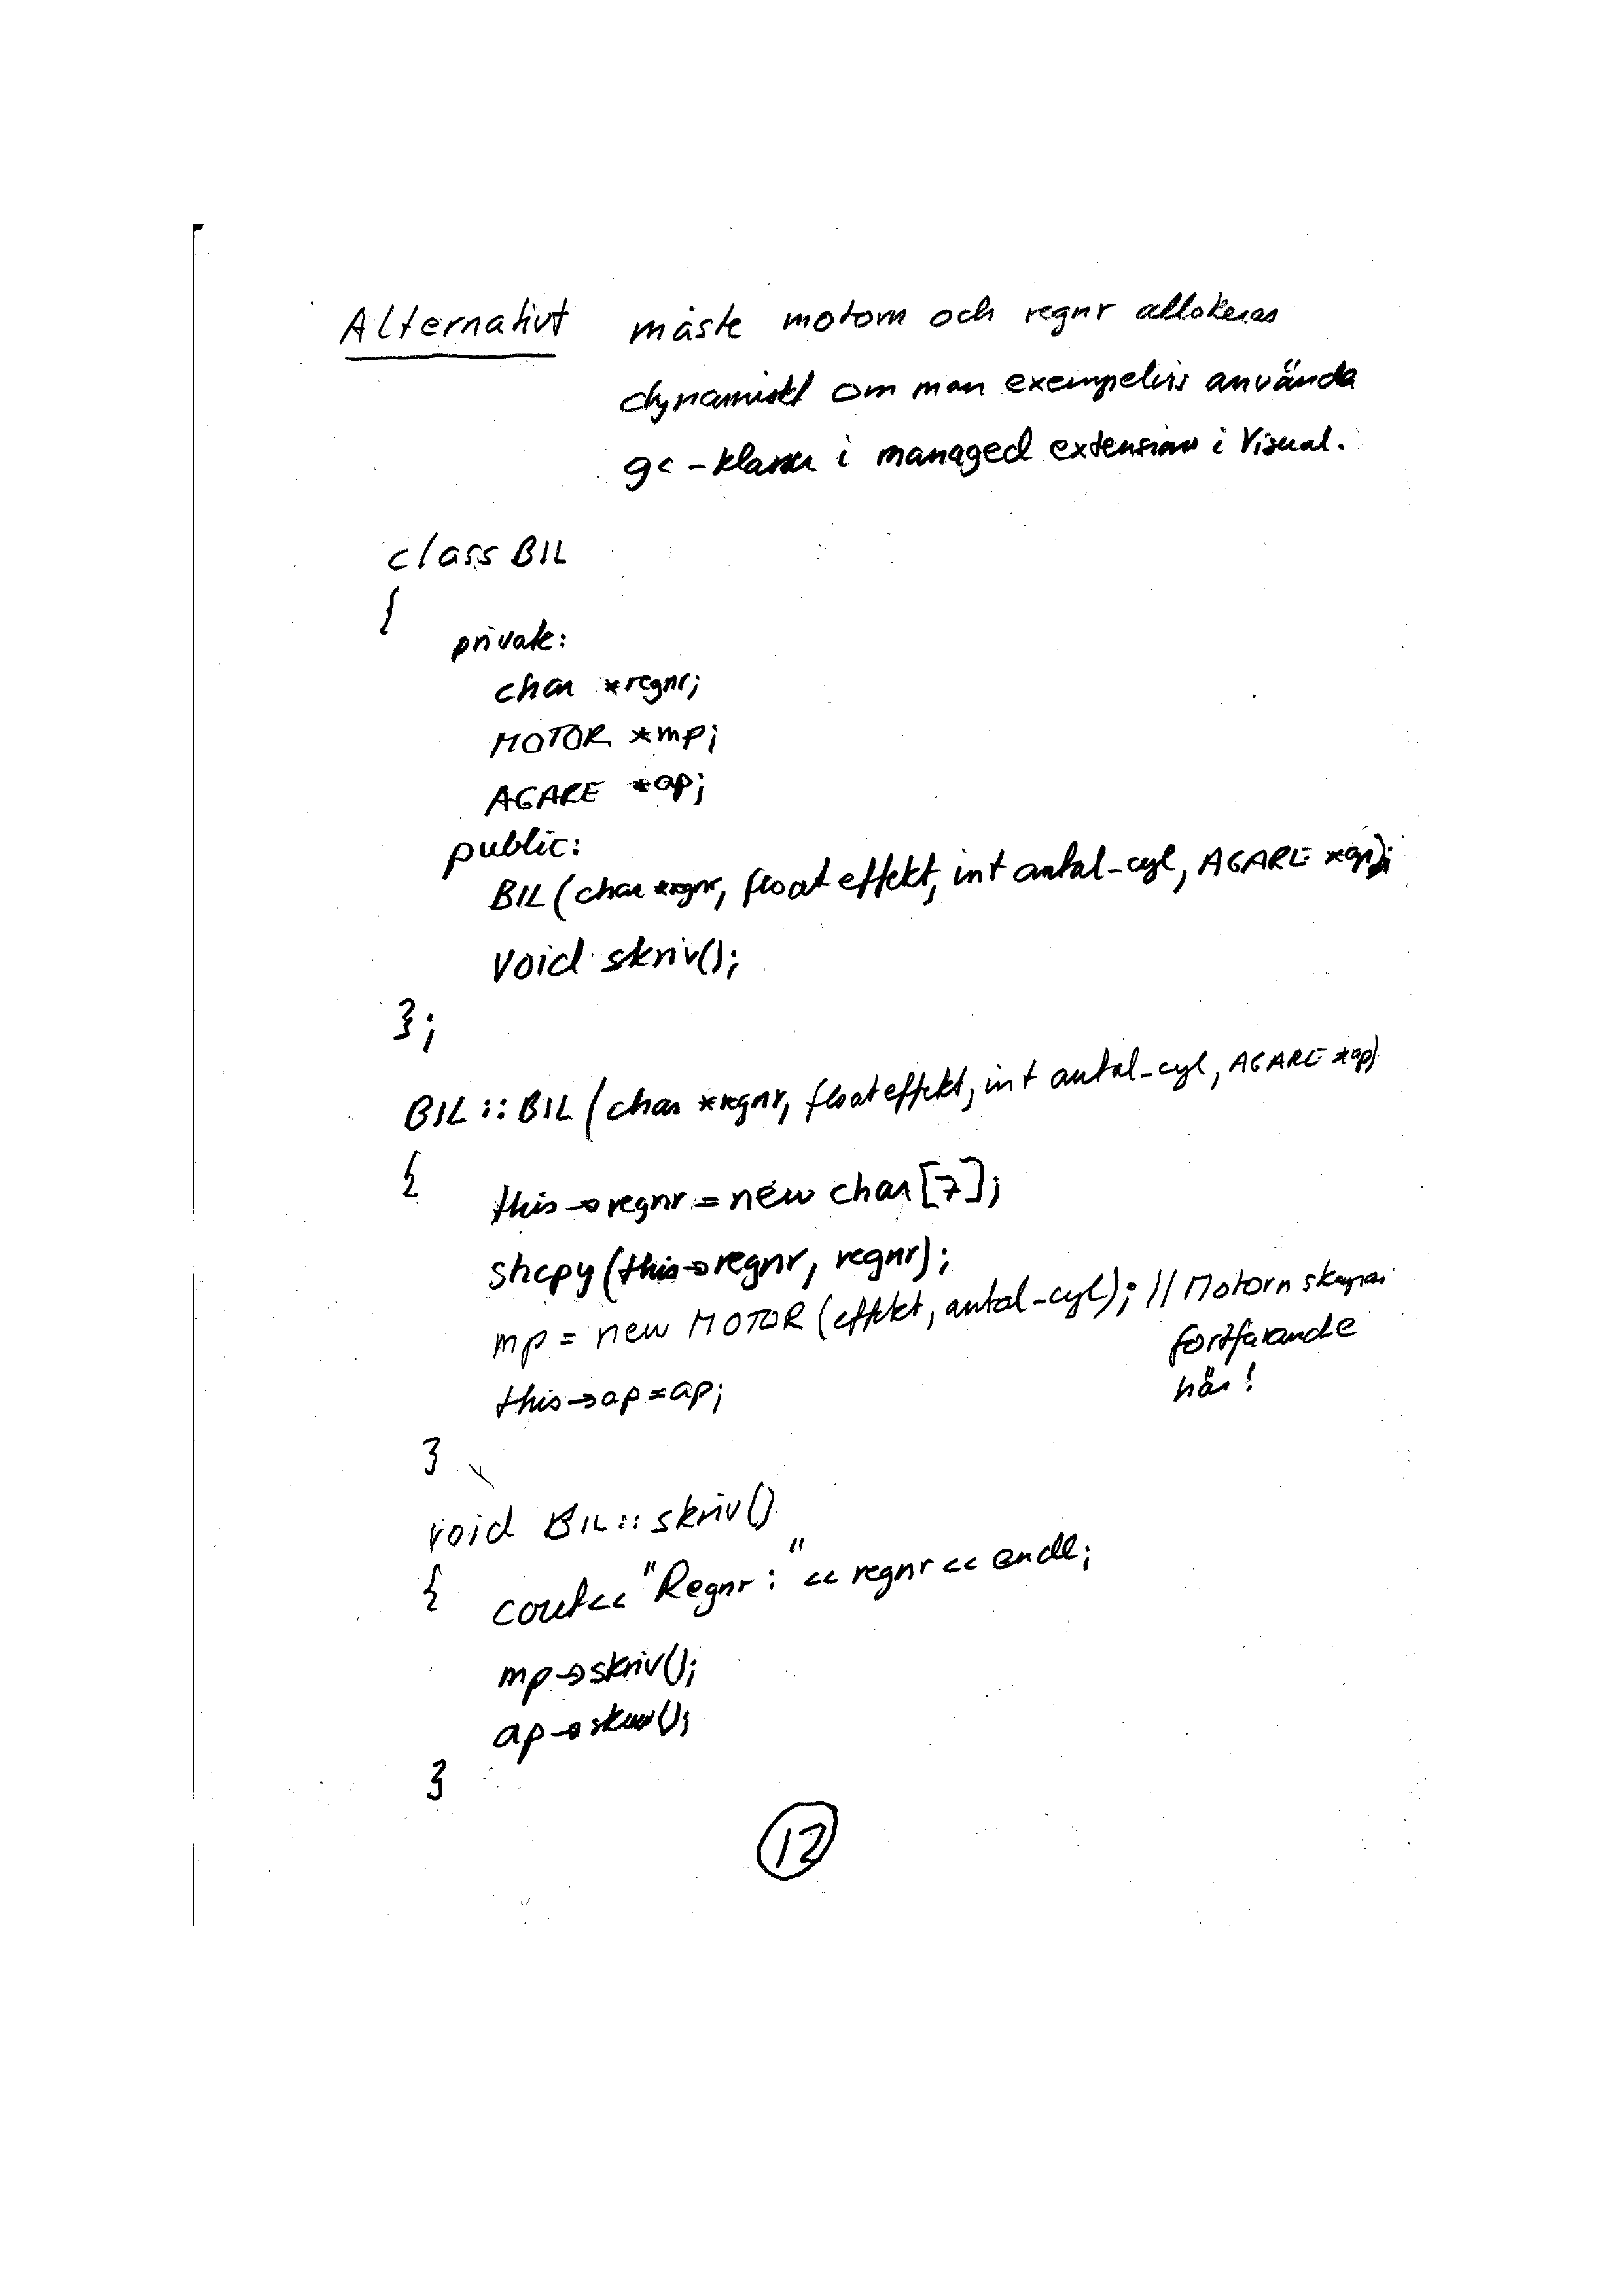 Alternativt måste motorn och regnr allokeras
dynamiskt om man exempelvis använda
gc-klasser i managed extensions i Visual.
class BIL
{
private:
char *regnr;
MOTOR *mp;
AGARE *ap;
public:
BIL(char *regnr, float effekt, int antal_cyl, AGARE *ap);
void skriv();
};
BIL::BIL(char *regnr, float effekt, int antal_cyl, AGARE *ap)
{ this->regnr = new char[7];
strcpy(this->regnr, regnr);
mp = new MOTOR(effekt, antal_cyl); // Motorn skapas
fortfarande
här!
this->ap=ap;
}
void BIL::skriv()
{ cout<<"Regnr:"<<regnr<<endl;
mp->skriv();
ap->skriv();
}
12